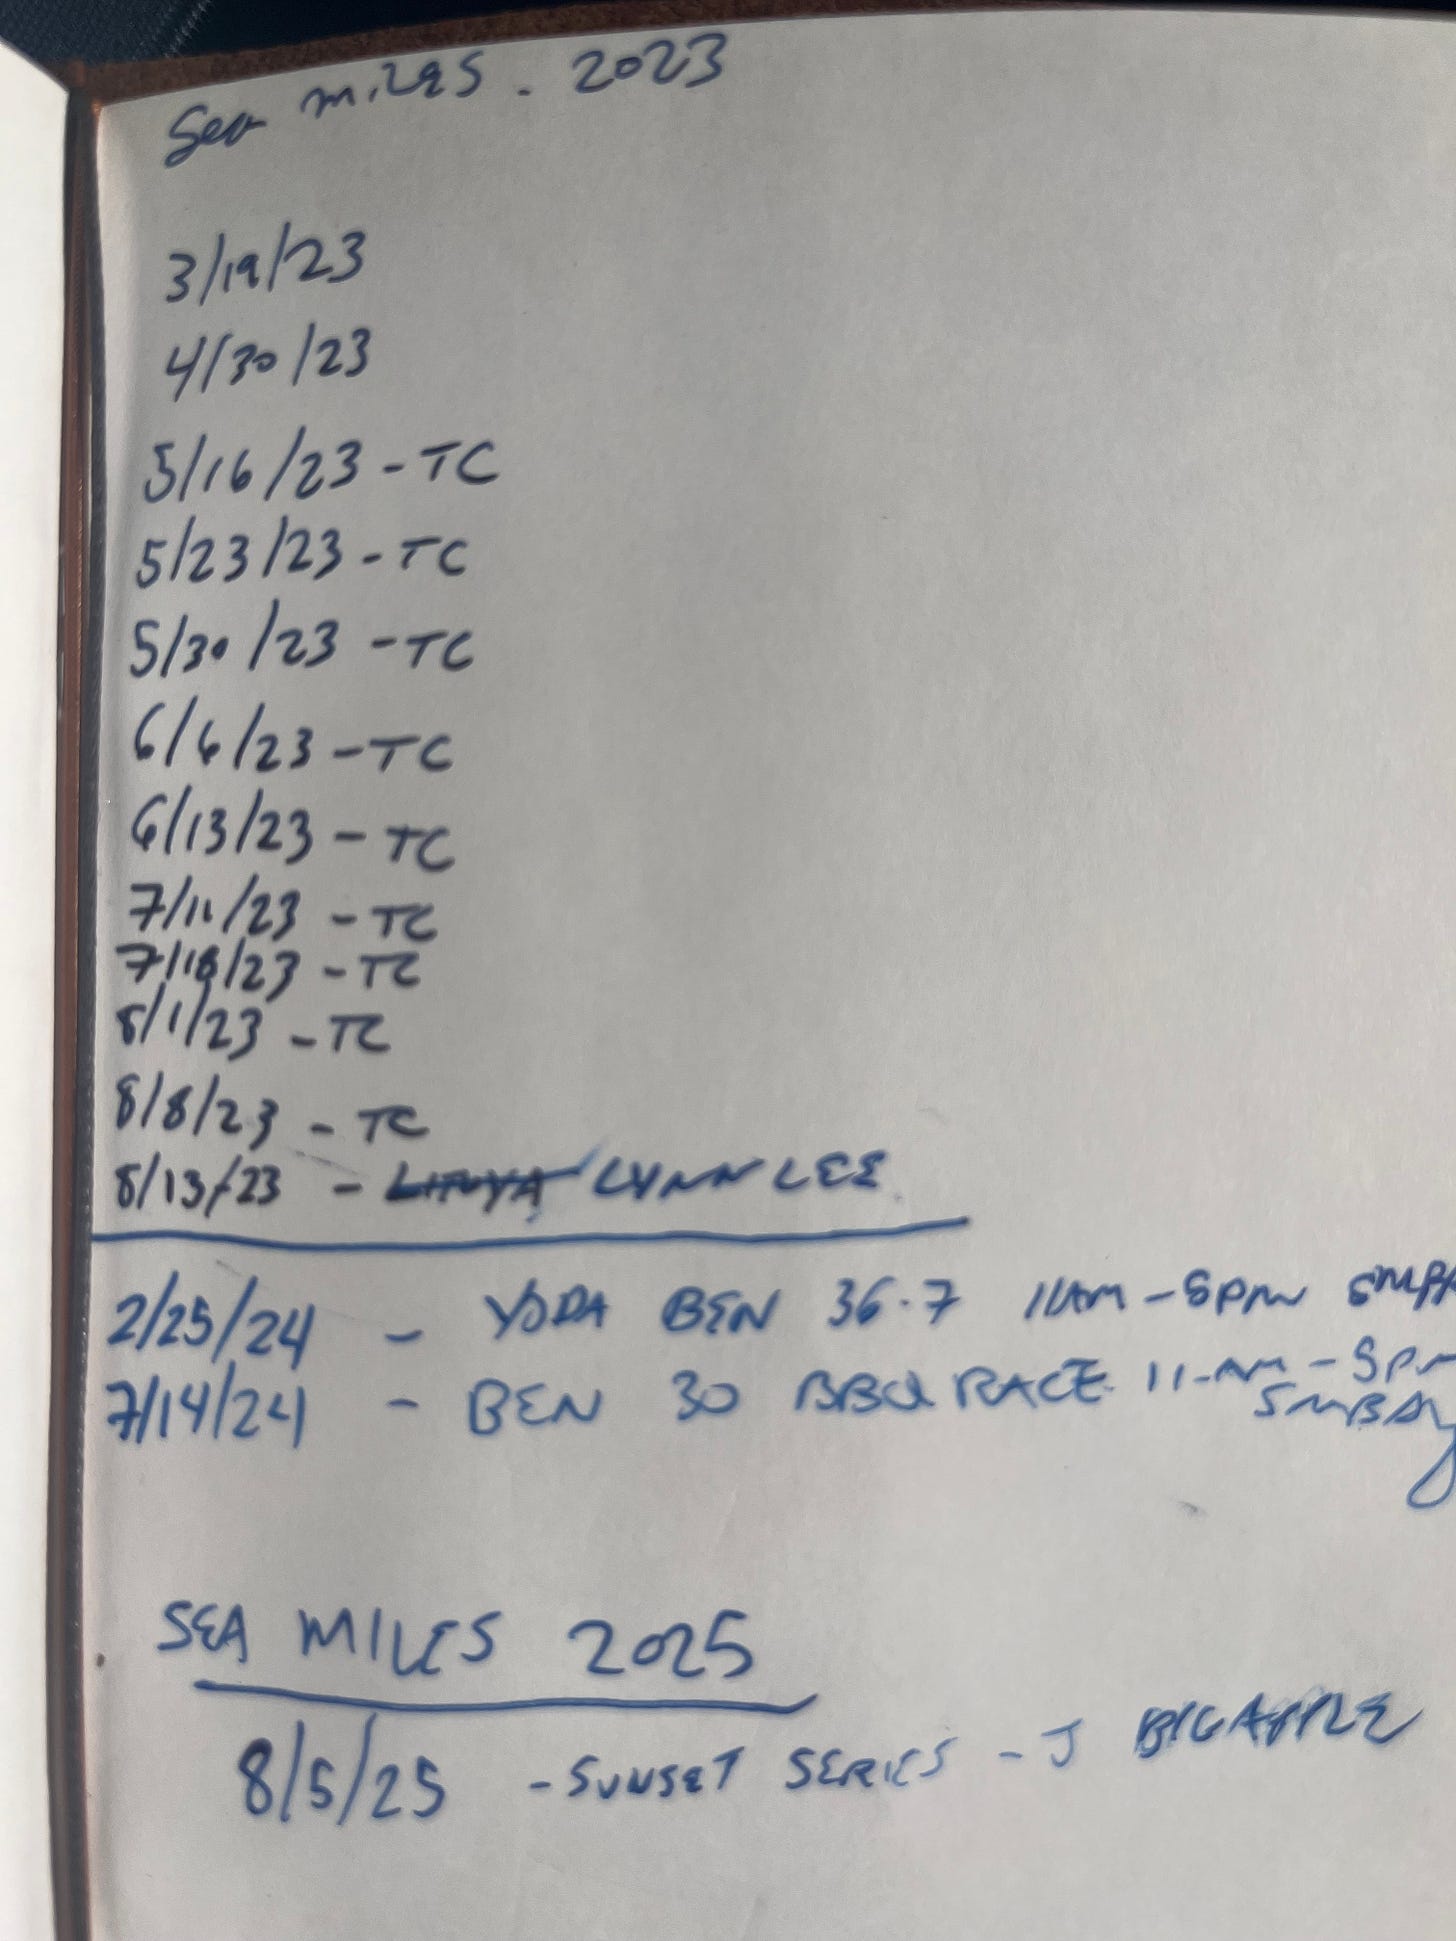 Sea miles. 2023
3/19/23
4/30/23
5/16/23 - TC
5/23/23 - TC
5/30/23 - TC
6/6/23 - TC
6/13/23 - TC
7/11/23 - TC
7/18/23 - TC
8/1/23 - TC
8/8/23 - TC
8/13/23 - LYNN LEE
2/25/24 - YODA BEN 36.7 11AM - 5PM
7/14/24 - BEN 30 BBQ RACE 11-AM -
SMBAY
SEA MILES 2025
8/5/25 - SUNSET SERIES - J BIG APPLE